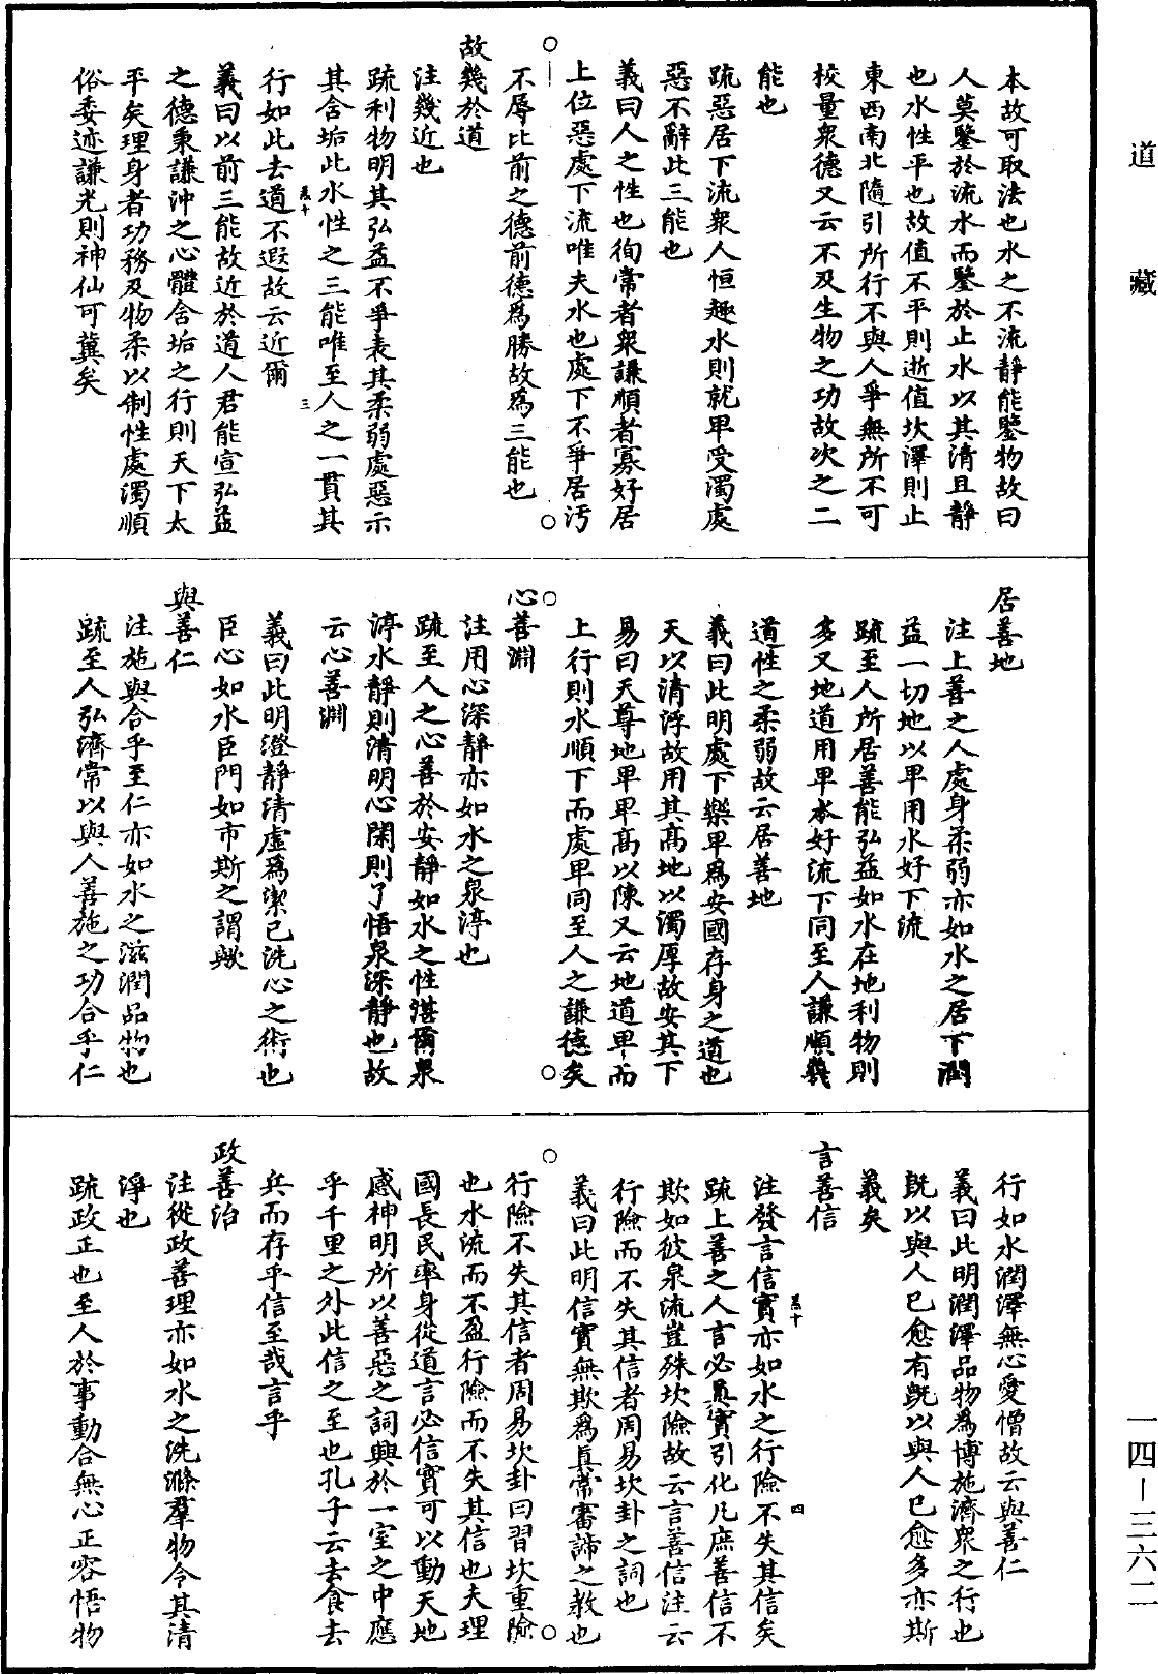 道藏
本故可取法也水之不流靜能鑒物故曰
人莫鑒於流水而鑒於止水以其清且靜
也水性平也故值不平則逝值坎澤則止
東西南北隨引所行不與人爭無所不可
校量衆德又云不及生物之功故次之二
能也
疏惡居下流衆人恒趣水則就卑受濁處
惡不辭此三能也
義曰人之性也徇常者衆謙順者寡好居
上位惡處下流唯夫水也處下不爭居污
不辱比前之德前德爲勝故爲三能也
故幾於道
注幾近也
疏利物明其弘益不爭表其柔弱處惡示
其含垢此水性之三能唯至人之一貫其
卷十
三
行如此去道不遐故云近爾
義曰以前三能故近於道人君能宣弘益
之德秉謙沖之心體含垢之行則天下太
平矣理身者功務及物柔以制性處濁順
俗委迹謙光則神仙可冀矣
居善地
注上善之人處身柔弱亦如水之居下潤
益一切地以卑用水好下流
疏至人所居善能弘益如水在地利物則
多又地道用卑水好流下同至人謙順義
道性之柔弱故云居善地
義曰此明處下樂卑爲安國存身之道也
天以清浮故用其高地以濁厚故安其下
易曰天尊地卑卑高以陳又云地道卑而
上行則水順下而處卑同至人之謙德矣
心善淵
注用心深靜亦如水之泉渟也
疏至人之心善於安靜如水之性湛爾泉
渟水靜則清明心閑則了悟泉深靜也故
云心善淵
義曰此明澄靜清虛爲潔己洗心之術也
臣心如水臣門如市斯之謂歟
與善仁
注施與合乎至仁亦如水之滋潤品物也
疏至人弘濟常以與人善施之功合乎仁
行如水潤澤無心愛憎故云與善仁
義曰此明潤澤品物爲博施濟衆之行也
旣以與人己愈有旣以與人己愈多亦斯
義矣
言善信
注發言信實亦如水之行險不失其信矣
卷十
四
疏上善之人言必真實引化凡庶善信不
欺如彼泉流豈殊坎險故云言善信注云
行險而不失其信者周易坎卦之詞也
義曰此明信實無欺爲真常審諦之教也
行險不失其信者周易坎卦曰習坎重險
也水流而不盈行險而不失其信也夫理
國長民率身從道言必信實可以動天地
感神明所以善惡之詞興於一室之中應
乎千里之外此信之至也孔子云去食去
兵而存乎信至哉言乎
政善治
注從政善理亦如水之洗滌羣物令其清
淨也
疏政正也至人於事動合無心正容悟物
一四—三六二